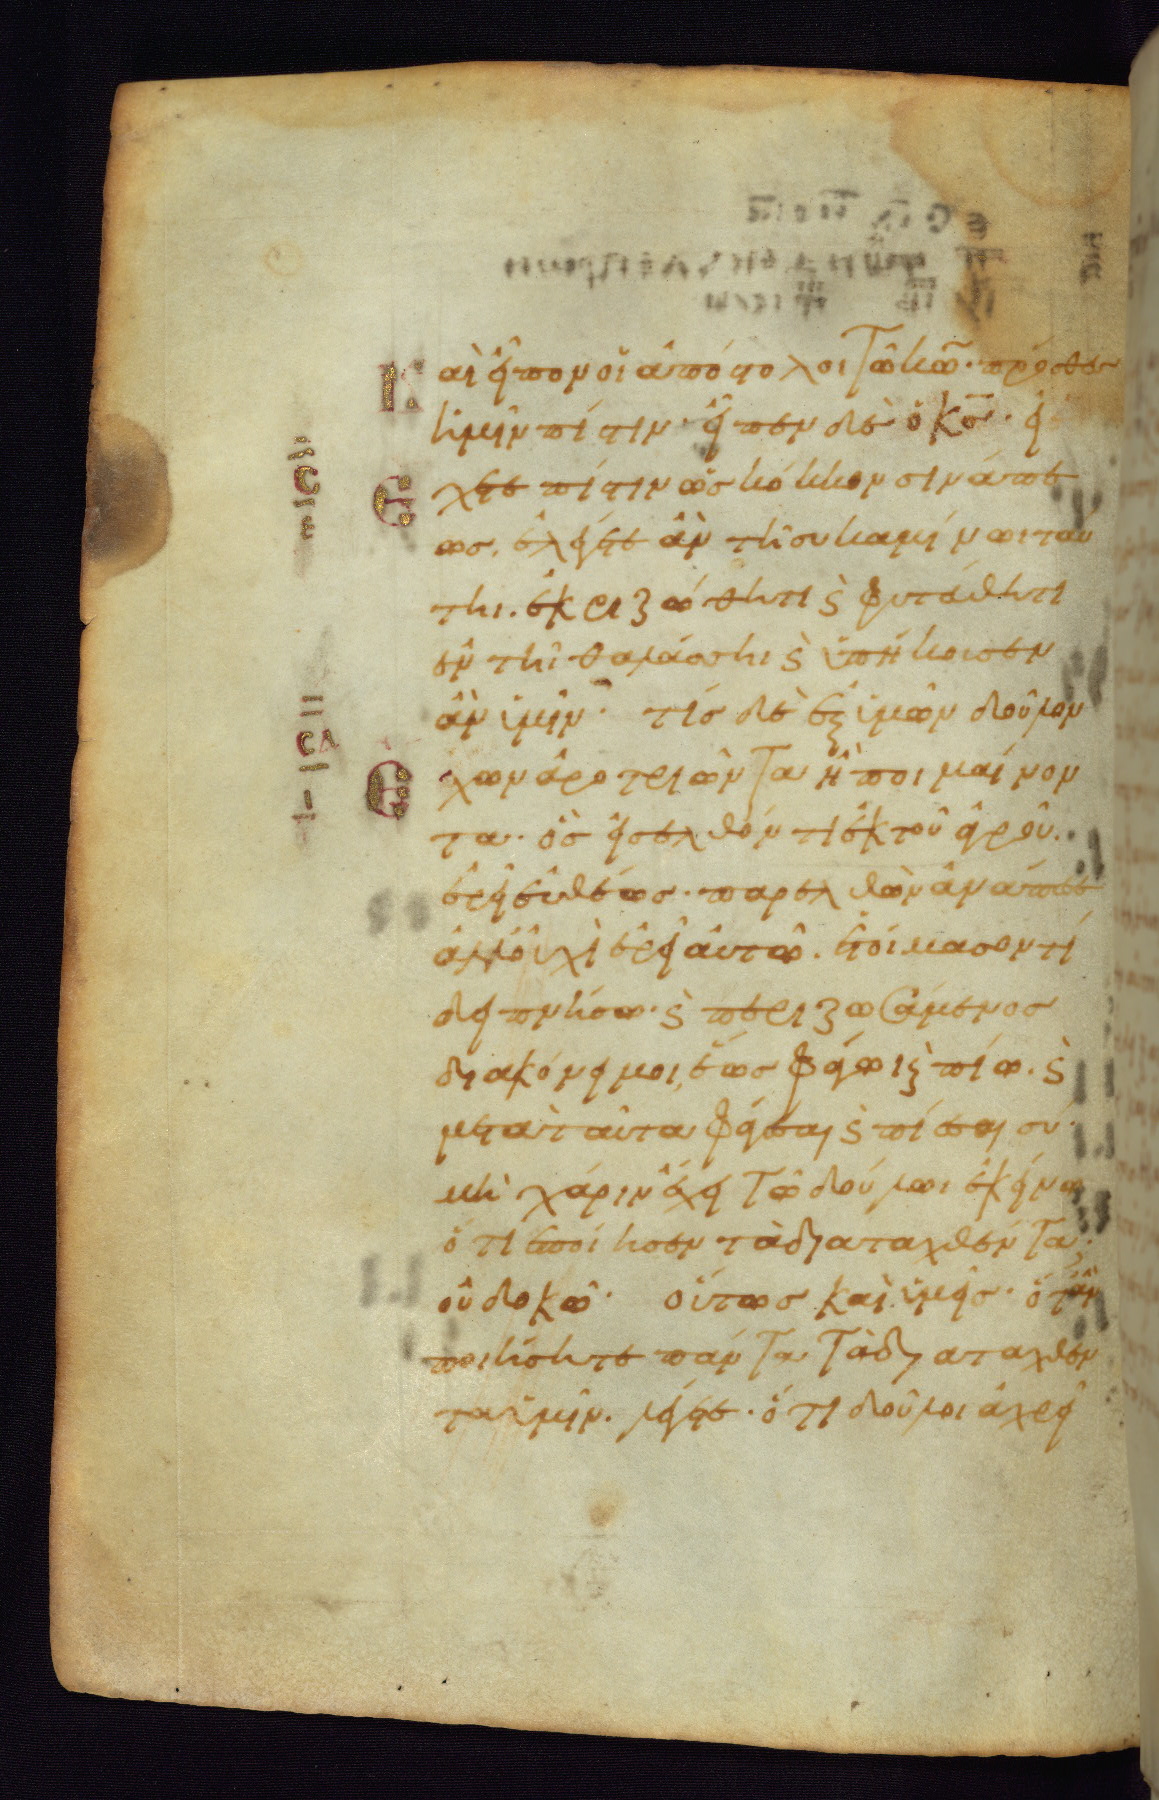 Καὶ εἶπον οἱ ἀπόστολοι τῶ κω̅· πρόσθες
ἡμῖν πίστιν· εἶπεν δὲ ὁ κς̅· εἰ ἔ
χετε πίστιν ὡς κόκκον σινάπε
ως, ἐλέγετε ἂν τῆ συκαμίνωι ταύ
τηι. ἐκριζώθητι ϗ φυτεύθητι
ἐν τῆι θαλάσσηι ϗ ὑπήκουσεν
ἂν ὑμῖν· τίς δὲ ἐξ ὑμῶν δοῦλον
Ἔχων ἀροτριῶντα ἢ ποιμαίνον
τα· ὃς εἰσελθόντι ἐκ τοῦ ἀγροῦ.
ἐρεῖ εὐθέως· παρελθὼν ἀνάπεσε
ἀλλ' οὐχὶ ἐρεῖ αὐτῶ. ἑτοίμασον τί
δειπνήσω· ϗ περιζωσάμενος
διακόνει μοι, ἕως φάγω ϗ πίω. ϗ
μετὰ ταῦτα φάγεσαι ϗ πίεσαι σύ·
μὴ χάριν ἔχει τῶ δούλωι ἐκείνω
ὅτι ἐποίησεν τὰ διαταχθέντα;
οὐ δοκῶ· οὕτως καὶ ὑμεῖς· ὅταν
ποιήσητε πάντα τὰ διαταχθέν
τα ὑμῖν. λέγετε· ὅτι δοῦλοι ἀχρεῖ